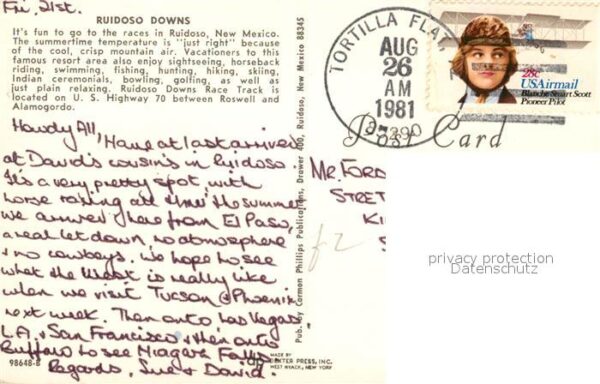 Fri, 21st.
RUIDOSO DOWNS
It's fun to go to the races in Ruidoso, New Mexico.
The summertime temperature is "just right" because
of the cool, crisp mountain air. Vacationers to this
famous resort area also enjoy sightseeing, horseback
riding, swimming, fishing, hunting, hiking, skiing,
Indian ceremonials, bowling, golfing, as well as
just plain relaxing. Ruidoso Downs Race Track is
located on U. S. Highway 70 between Roswell and
Alamogordo.
Howdy All,
Have at last arrived
at David's cousins in Ruidoso.
It's a very pretty spot, with
horse racing all thro' the summer
we arrived here from El Paso,
a real let down, no atmosphere
+ no cowboys. We hope to see
what the West is really like
when we visit Tucson + Phoenix
next week. Then onto Las Vegas,
L.A. + San Francisco + then onto
Buffalo to see Niagara Falls.
Regards, Sue + David.
98648-B
MADE BY
DEXTER PRESS, INC.
WEST NYACK, NEW YORK
Pub. by Carmon Phillips Publications, Drawer 400, Ruidoso, New Mexico 88345
TORTILLA FLAT
AUG
26
AM
1981
28c
USAirmail
Blanche Stuart Scott
Pioneer Pilot
Post Card
MR. FORD
STRET
KI
S
£2
privacy protection
Datenschutz